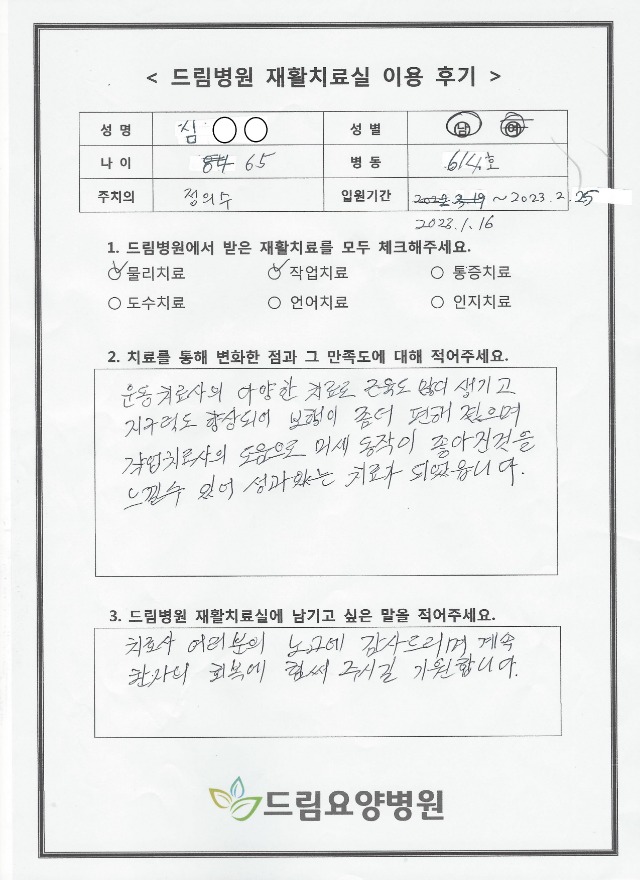 < 드림병원 재활치료실 이용 후기 >
성 명 심 ○○ 성 별 남 여
나 이 84 65 병 동 614호
주치의 정의수 입원기간 ~ 2023. 2. 25
2023. 1. 16
1. 드림병원에서 받은 재활치료를 모두 체크해주세요.
물리치료 작업치료 통증치료
도수치료 언어치료 인지치료
2. 치료를 통해 변화한 점과 그 만족도에 대해 적어주세요.
운동치료사의 다양한 치료로 근육도 많이 생기고
지구력도 향상되어 보행이 좀더 편해 졌으며
작업치료사의 도움으로 미세 동작이 좋아진것을
느낄수 있어 성과있는 치료가 되었습니다.
3. 드림병원 재활치료실에 남기고 싶은 말을 적어주세요.
치료사 여러분의 노고에 감사드리며 계속
환자의 회복에 힘써 주시길 기원합니다.
드림요양병원